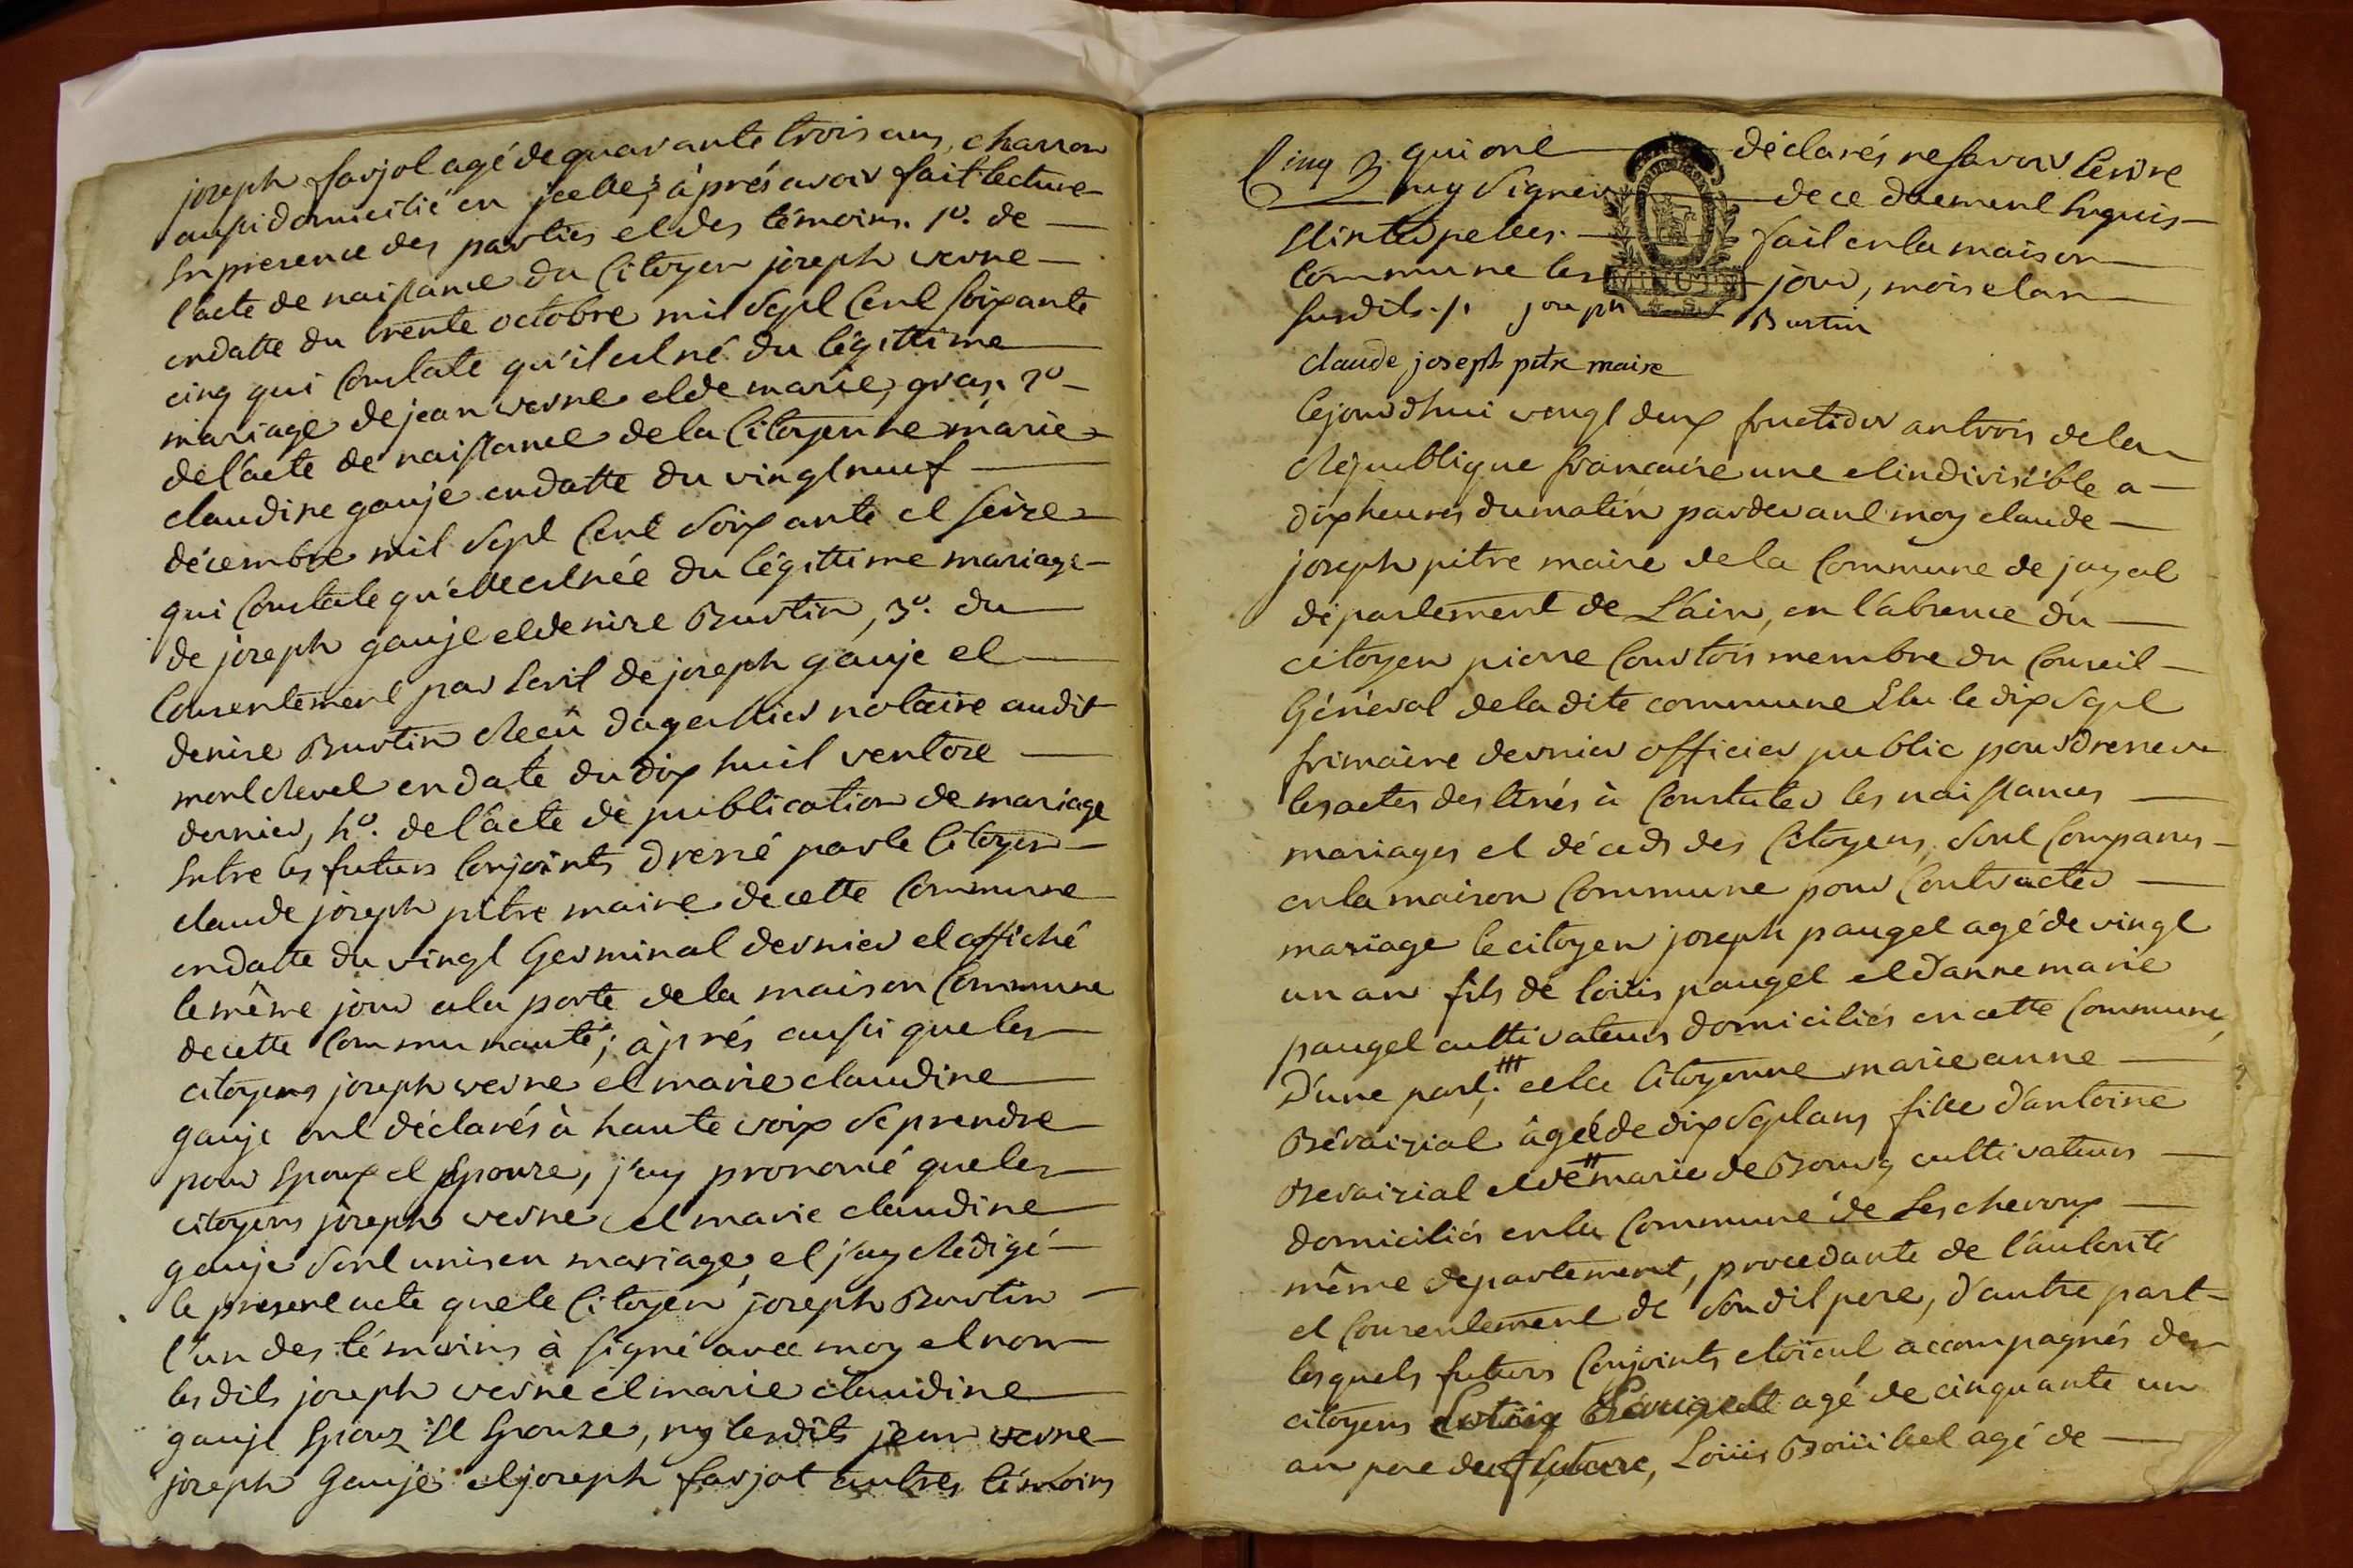 joseph farjot agé de quarante trois ans, charron
aussi domicilié en jcelle; àprés avoir fait lecture
En presence des parties et des témoins. 1º. de
l'acte de naissance du Citoyen joseph verne
endatte du trente octobre mil Sept Cent Soixante
cinq qui Constate qu'il est né du légittime
mariage de jean verne et de marie gras. 2º
de l'acte de naissance de la Citoyenne marie
claudine gauje endatte du vingt neuf
décembre mil Sept Cent Soixante et seize
qui Constate qu'elle est née du légittime mariage
de joseph gauje et denise Burtin, 3º. du
Consentement par Ecrit de joseph gauje et
denise Burtin Recû notaire audit
montrevel en date du dix huit ventose
dernier, 4º. de l'acte de publication de mariage
Entre les futurs Conjoints dressé par le Citoyen
claude joseph pitre maire de cette Commune
endatte du vingt Germinal dernier et affiché
le même jour a la porte de la maison Commune
de cette Communauté; àprés aussi que les
citoyens joseph verne et marie claudine
gauje ont déclarés à haute voix Se prendre
pour Epoux et Epouse, j'ay prononcé que les
citoyens joseph verne et marie claudine
gauje Sont unis en mariage, et j'ay Rédigé
le present acte que le Citoyen joseph Burtin
l'un des témoins à signé avec moy et non
les dits joseph verne et marie claudine
gauje Epoux Et Epouse, ny lesdits jean verne
joseph Gauje et joseph farjot autres témoins
Cinq qui ont déclarés ne savoir Ecrire
ny Signer de ce duement Enquis
Et interpellés. fait en la maison
Commune les jour, mois et an
susdits. joseph Burtin
MINUTE
4 S.
claude joseph pitre maire
Cejourdhui vingt deux fructidor an trois de la
République francaise une et indivisible a
dix heures du matin pardevant moy claude
joseph pitre maire de la Commune de jayat
département de L'ain, en l'absence du
citoyen pierre Courtois membre du Conseil
Général de la dite commune Elu le dix Sept
frimaire dernier officier public pour dresser
les actes destinés à Constater les naissances
mariages et décés des Citoyens, Sont Comparus
en la maison Commune pour Contracter
mariage le citoyen joseph paugel agé de vingt
un an fils de loüis paugel et d'anne marie
paugel cultivateurs domiciliés en cette Commune,
D'une part; et la Citoyenne marie anne
Brévaizial âgéé de dix Sept ans fille d'antoine
Brevaizial et de marie de Bourg cultivateurs
domiciliés en la Commune de Lescheroux
même departement, procedante de l'autorité
et Consentement de Son dit pere, d'autre part
lesquels futurs Conjoints etoient accompagnés des
citoyens agé de cinquante un
an pere Loüis agé de